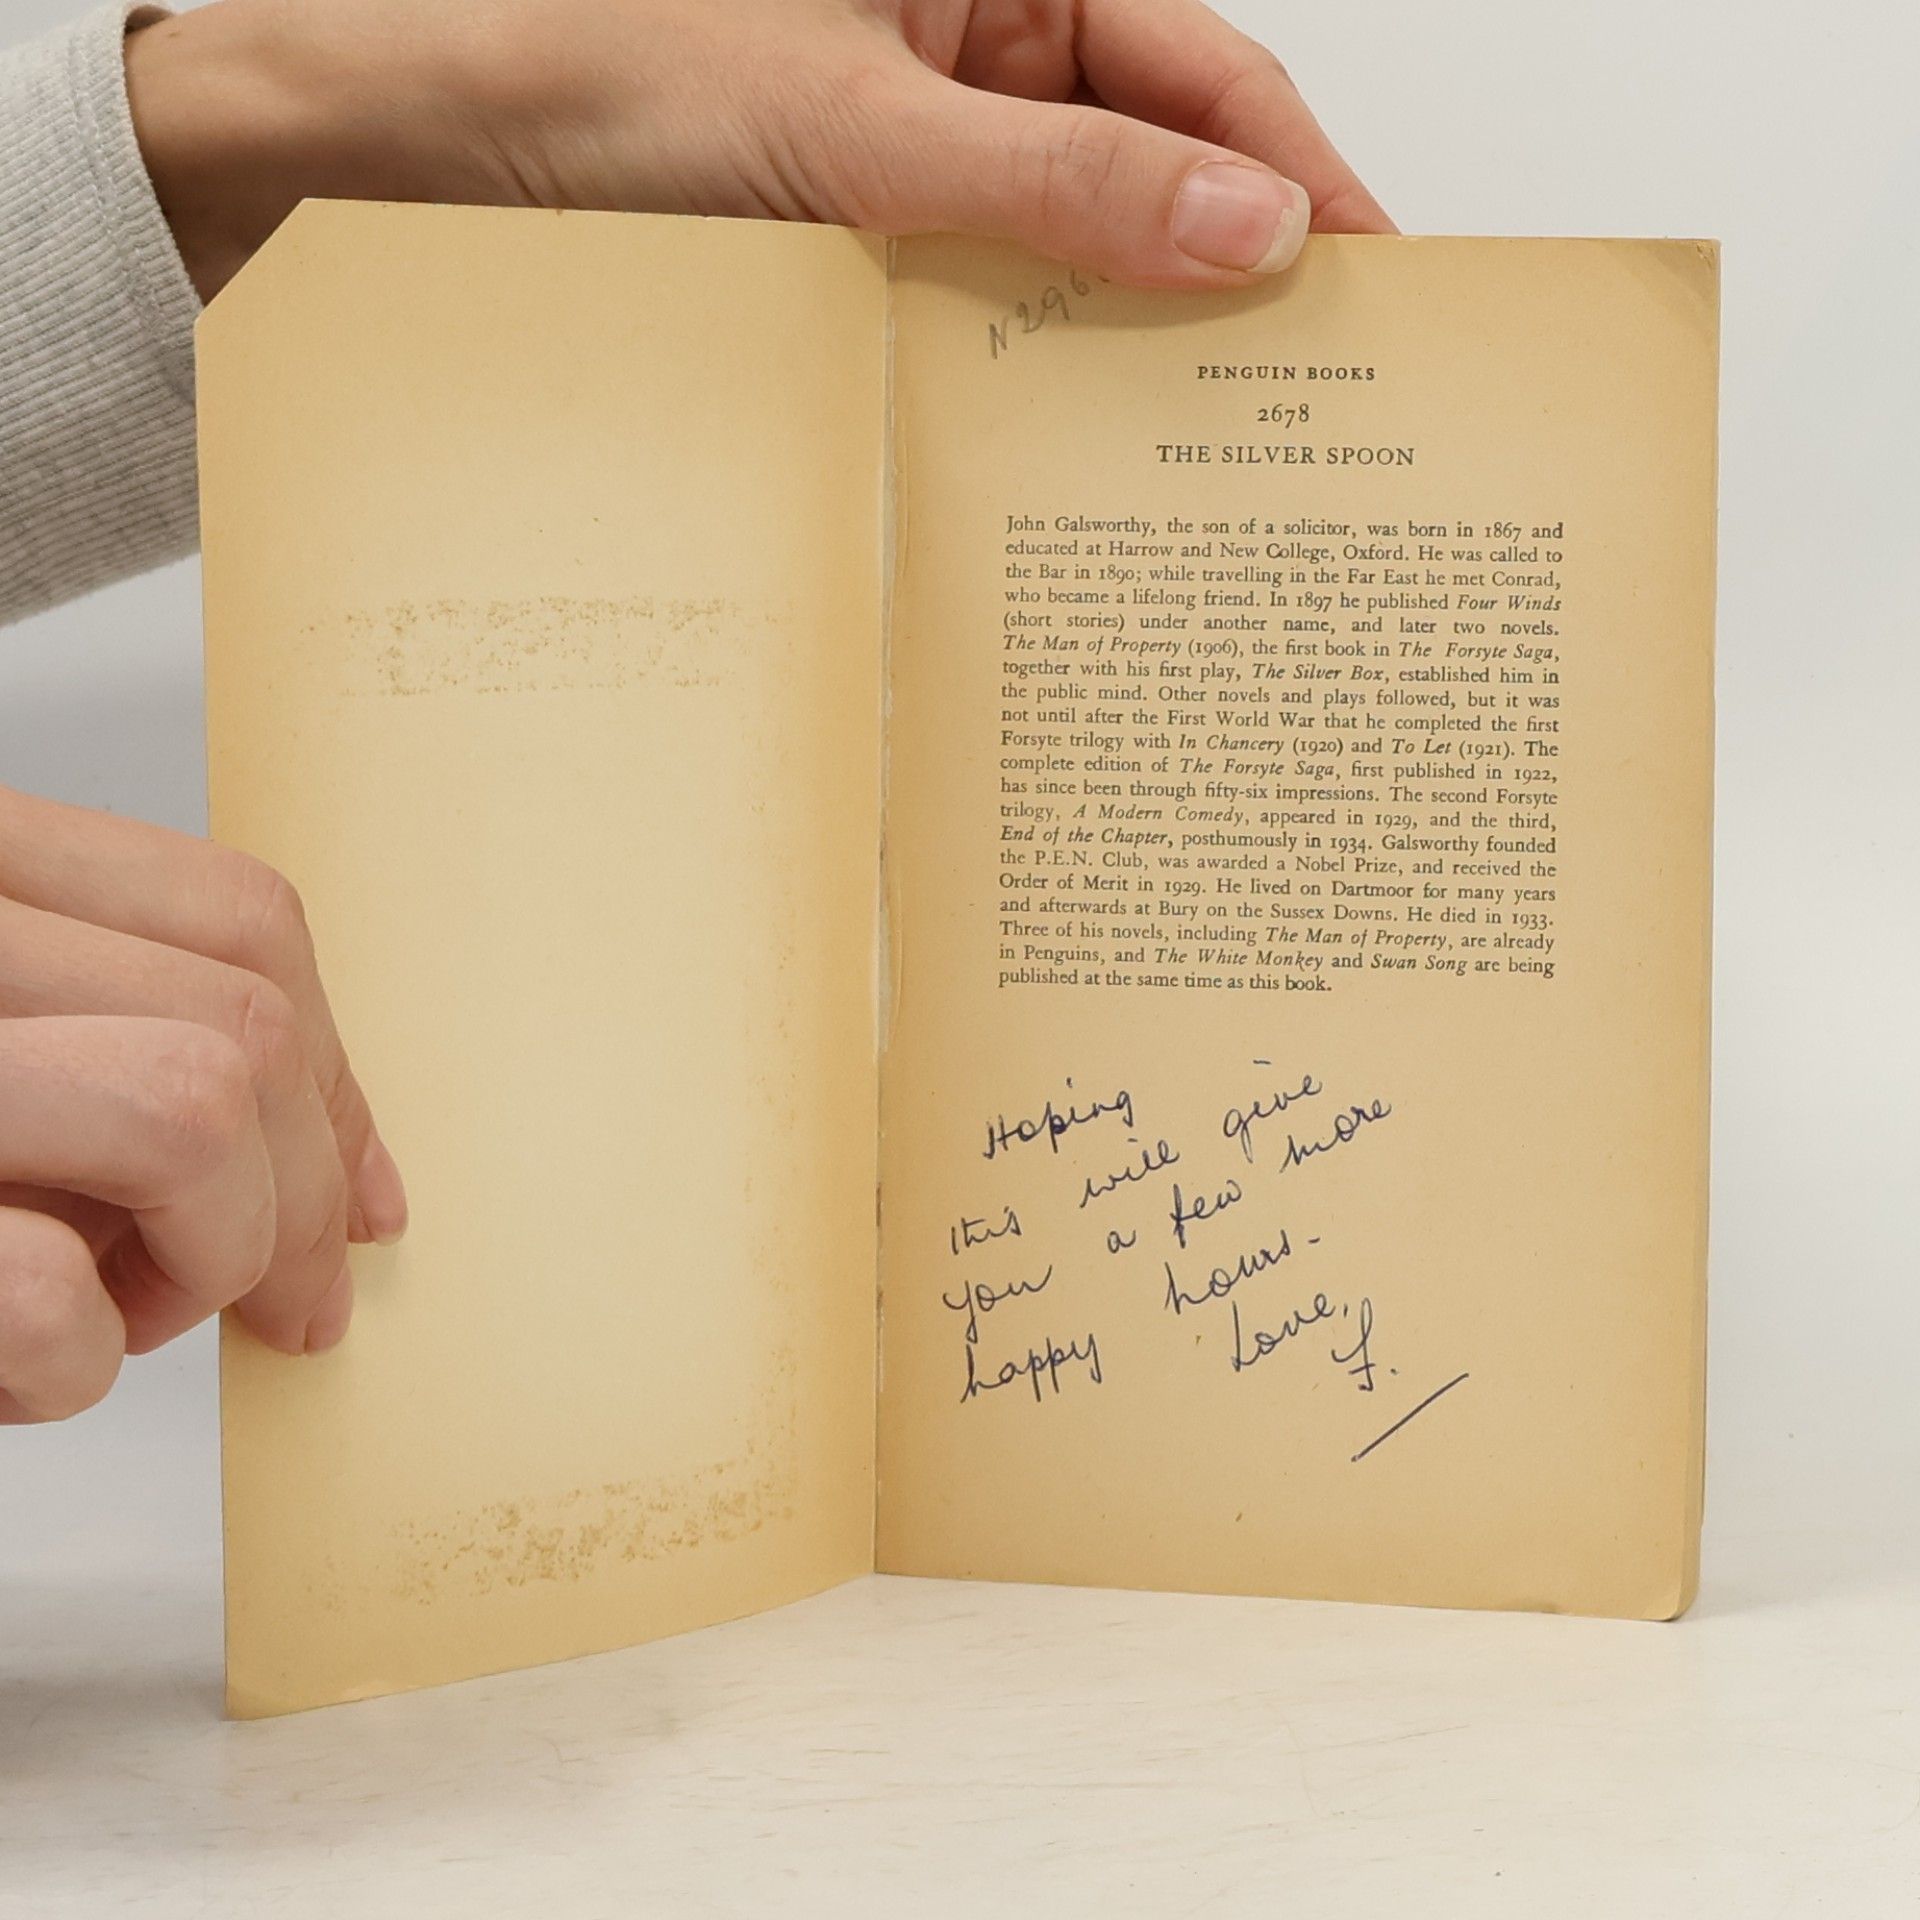 N296
PENGUIN BOOKS
2678
THE SILVER SPOON
John Galsworthy, the son of a solicitor, was born in 1867 and
educated at Harrow and New College, Oxford. He was called to
the Bar in 1890; while travelling in the Far East he met Conrad,
who became a lifelong friend. In 1897 he published Four Winds
(short stories) under another name, and later two novels.
The Man of Property (1906), the first book in The Forsyte Saga,
together with his first play, The Silver Box, established him in
the public mind. Other novels and plays followed, but it was
not until after the First World War that he completed the first
Forsyte trilogy with In Chancery (1920) and To Let (1921). The
complete edition of The Forsyte Saga, first published in 1922,
has since been through fifty-six impressions. The second Forsyte
trilogy, A Modern Comedy, appeared in 1929, and the third,
End of the Chapter, posthumously in 1934. Galsworthy founded
the P.E.N. Club, was awarded a Nobel Prize, and received the
Order of Merit in 1929. He lived on Dartmoor for many years
and afterwards at Bury on the Sussex Downs. He died in 1933.
Three of his novels, including The Man of Property, are already
in Penguins, and The White Monkey and Swan Song are being
published at the same time as this book.
Hoping
this will give
you a few more
happy hours-
Love,
F.